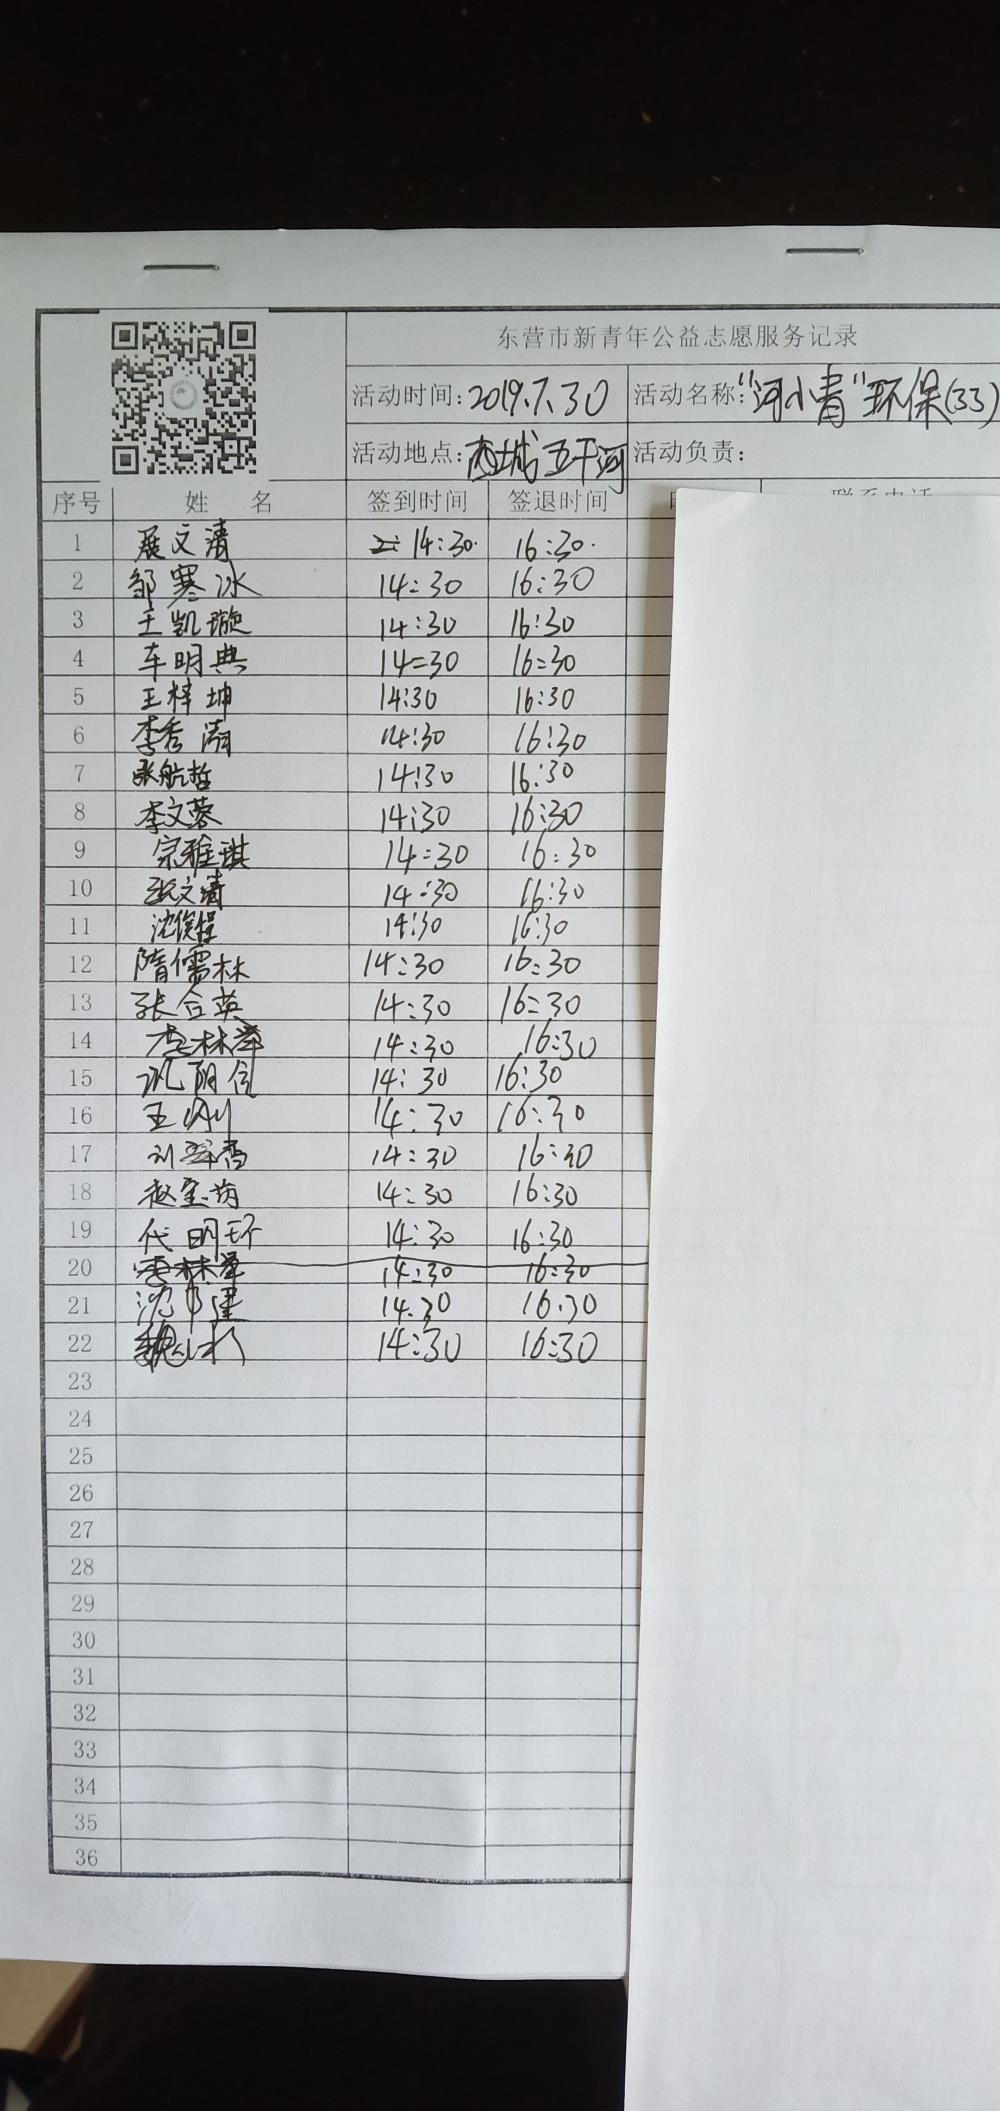 东营市新青年公益志愿服务记录
活动时间: 2019.7.30 活动名称: "河小青"环保(33)
活动地点: 西城五干河 活动负责:
序号 姓 名 签到时间 签退时间
1 展文清 14:30 16:30
2 邹寒冰 14:30 16:30
3 王凯璇 14:30 16:30
4 车明典 14:30 16:30
5 王梓坤 14:30 16:30
6 李秀 14:30 16:30
7 张航哲 14:30 16:30
8 李文蓉 14:30 16:30
9 宗雅琪 14:30 16:30
10 张文清 14:30 16:30
11 沈俊 14:30 16:30
12 隋儒林 14:30 16:30
13 张合英 14:30 16:30
14 李林 14:30 16:30
15 14:30 16:30
16 王刚 14:30 16:30
17 刘翠香 14:30 16:30
18 赵宝 14:30 16:30
19 代明环 14:30 16:30
20 14:30 16:30
21 沈 14.30 16.30
22 魏 14:30 16:30
23
24
25
26
27
28
29
30
31
32
33
34
35
36